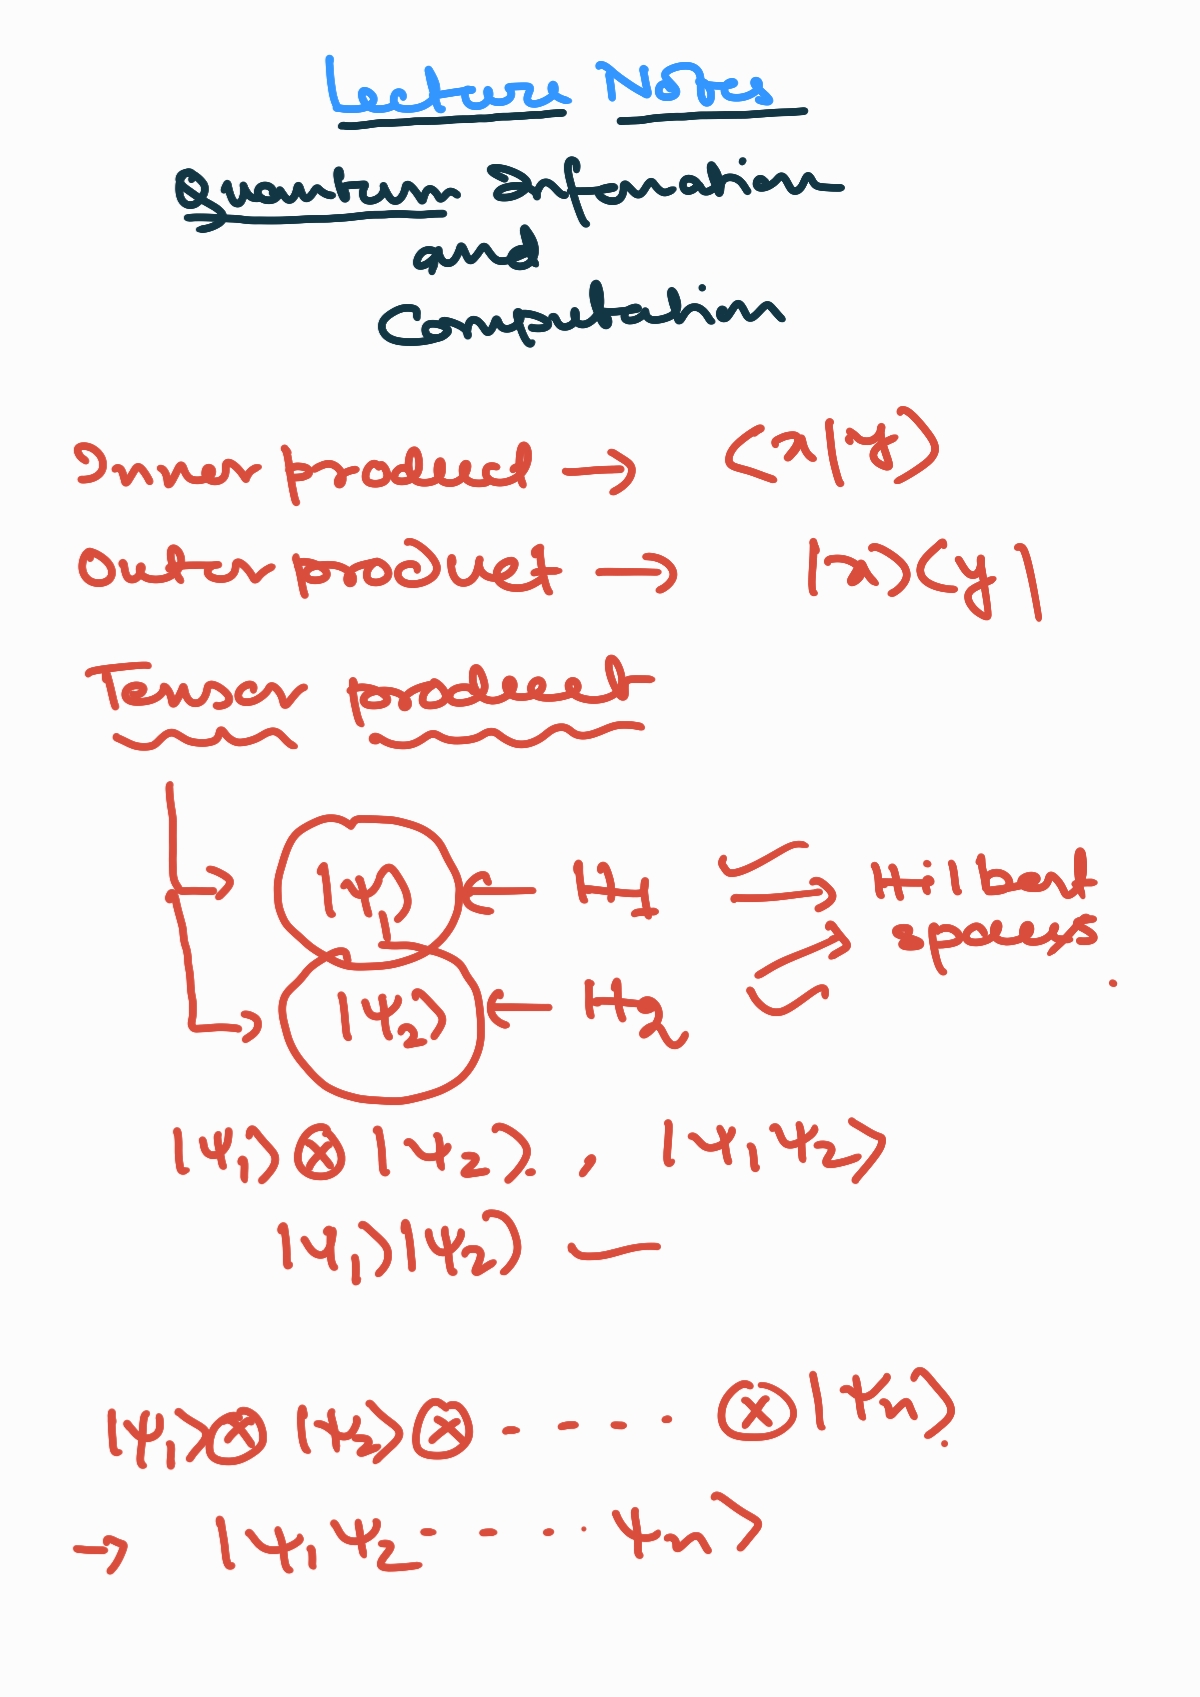 Lecture Notes
Quantum Information
and
Computation
Inner product → ⟨x|y⟩
Outer product → |x⟩⟨y|
Tensor product
|ψ₁⟩ ← H₁ → Hilbert
spaces
|ψ₂⟩ ← H₂ →
|ψ₁⟩ ⊗ |ψ₂⟩. , |ψ₁ψ₂⟩
|ψ₁⟩|ψ₂⟩
|ψ₁⟩ ⊗ |ψ₂⟩ ⊗ - - - - ⊗ |ψₙ⟩.
→ |ψ₁ψ₂ - - - - ψₙ⟩